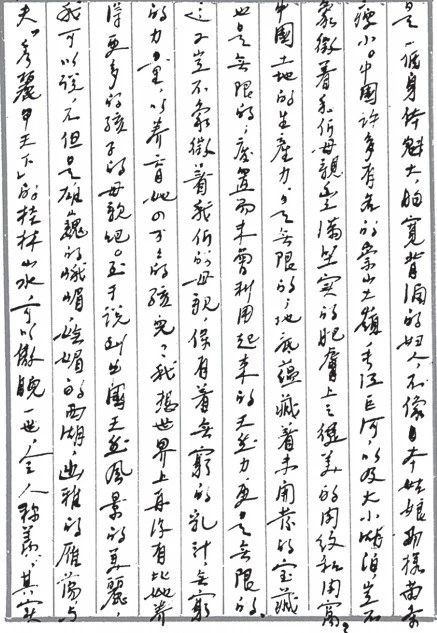 是一個身体魁大、胸寬背闊的妇人，不像日本姑娘那樣苗条
瘦小。中國許多有名的崇山大嶺，長江巨河，以及大小湖泊，豈不
象徵着我们母親丰滿坚实的肥膚上之健美的肉纹和肉窩？
中國土地的生產力，是無限的；地底蘊藏着未開發的宝藏
也是無限的；废置而未曾利用起来的天然力，更是無限的。
这又豈不象徵着我们的母親，保有着無窮的乳汁，無窮
的力量，以养育她四万万的孩兒？我想世界上再没有比她养
得更多的孩子的母親吧。至于说到中國天然風景的美麗，
我可以说，不但是雄巍的峨嵋，嫵媚的西湖，幽雅的雁蕩，与
夫“秀麗甲天下”的桂林山水，可以傲睨一世，令人稱羨；其实